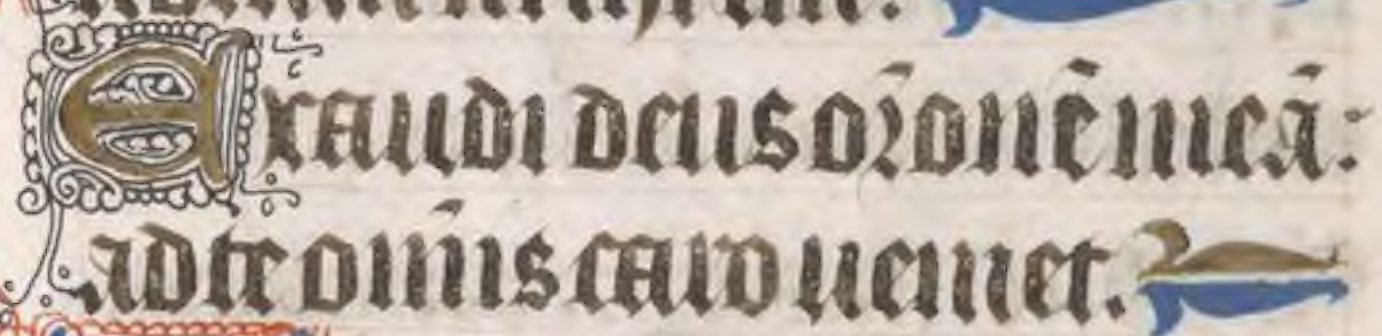 Exaudi deus or̄onē meā:
ad te om̄is caro ueniet.